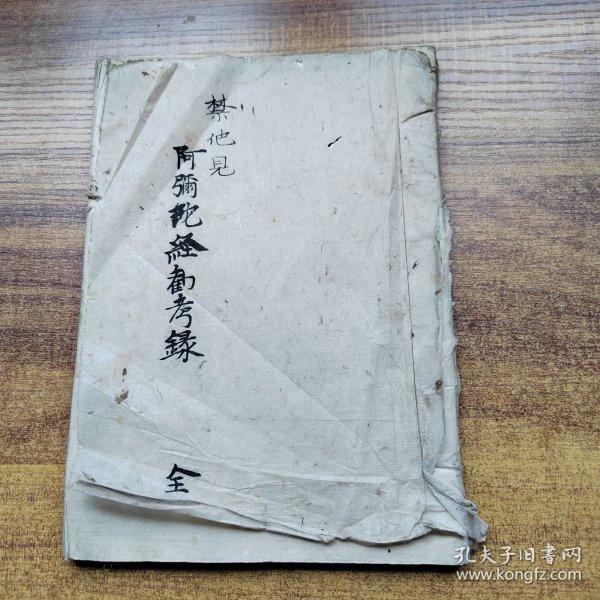 禁他見
阿彌陀経勸考録
全
孔夫子旧书网
www.kongfz.com